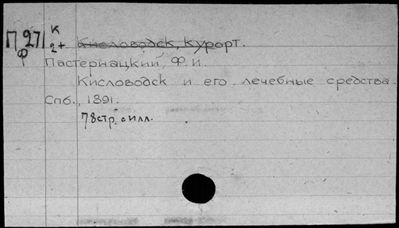 П 271 К
Ф 2+ Кисловодск, курорт.
Пастернацкий, Ф.И.
Кисловодск и его лечебные средства.
Спб., 1891.
78стр. с илл.